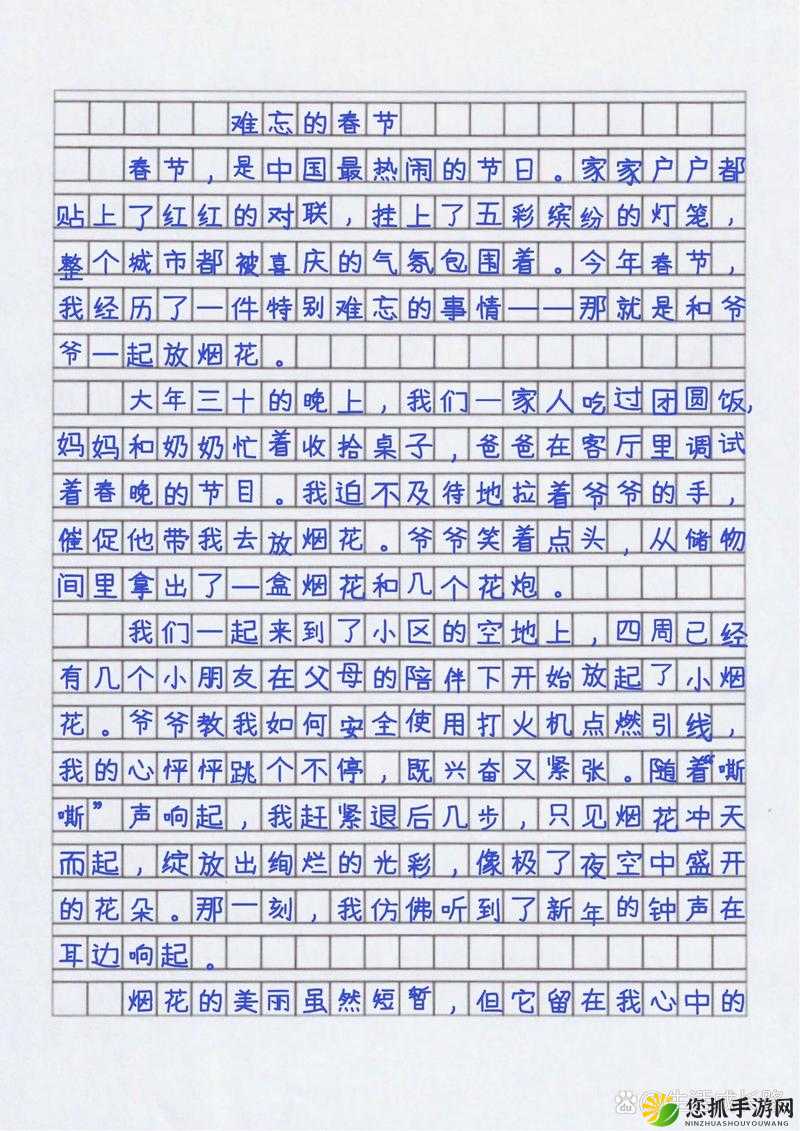 难忘的春节
春节，是中国最热闹的节日。家家户户都
贴上了红红的对联，挂上了五彩缤纷的灯笼，
整个城市都被喜庆的气氛包围着。今年春节，
我经历了一件特别难忘的事情——那就是和爷
爷一起放烟花。
大年三十的晚上，我们一家人吃过团圆饭，
妈妈和奶奶忙着收拾桌子，爸爸在客厅里调试
着春晚的节目。我迫不及待地拉着爷爷的手，
催促他带我去放烟花。爷爷笑着点头，从储物
间里拿出了一盒烟花和几个花炮。
我们一起来到了小区的空地上，四周已经
有几个小朋友在父母的陪伴下开始放起了小烟
花。爷爷教我如何安全使用打火机点燃引线，
我的心怦怦跳个不停，既兴奋又紧张。随着“嘶
嘶”声响起，我赶紧退后几步，只见烟花冲天
而起，绽放出绚烂的光彩，像极了夜空中盛开
的花朵。那一刻，我仿佛听到了新年的钟声在
耳边响起。
烟花的美丽虽然短暂，但它留在我心中的
您抓手游网
NINZHUASHOUYOUWANG